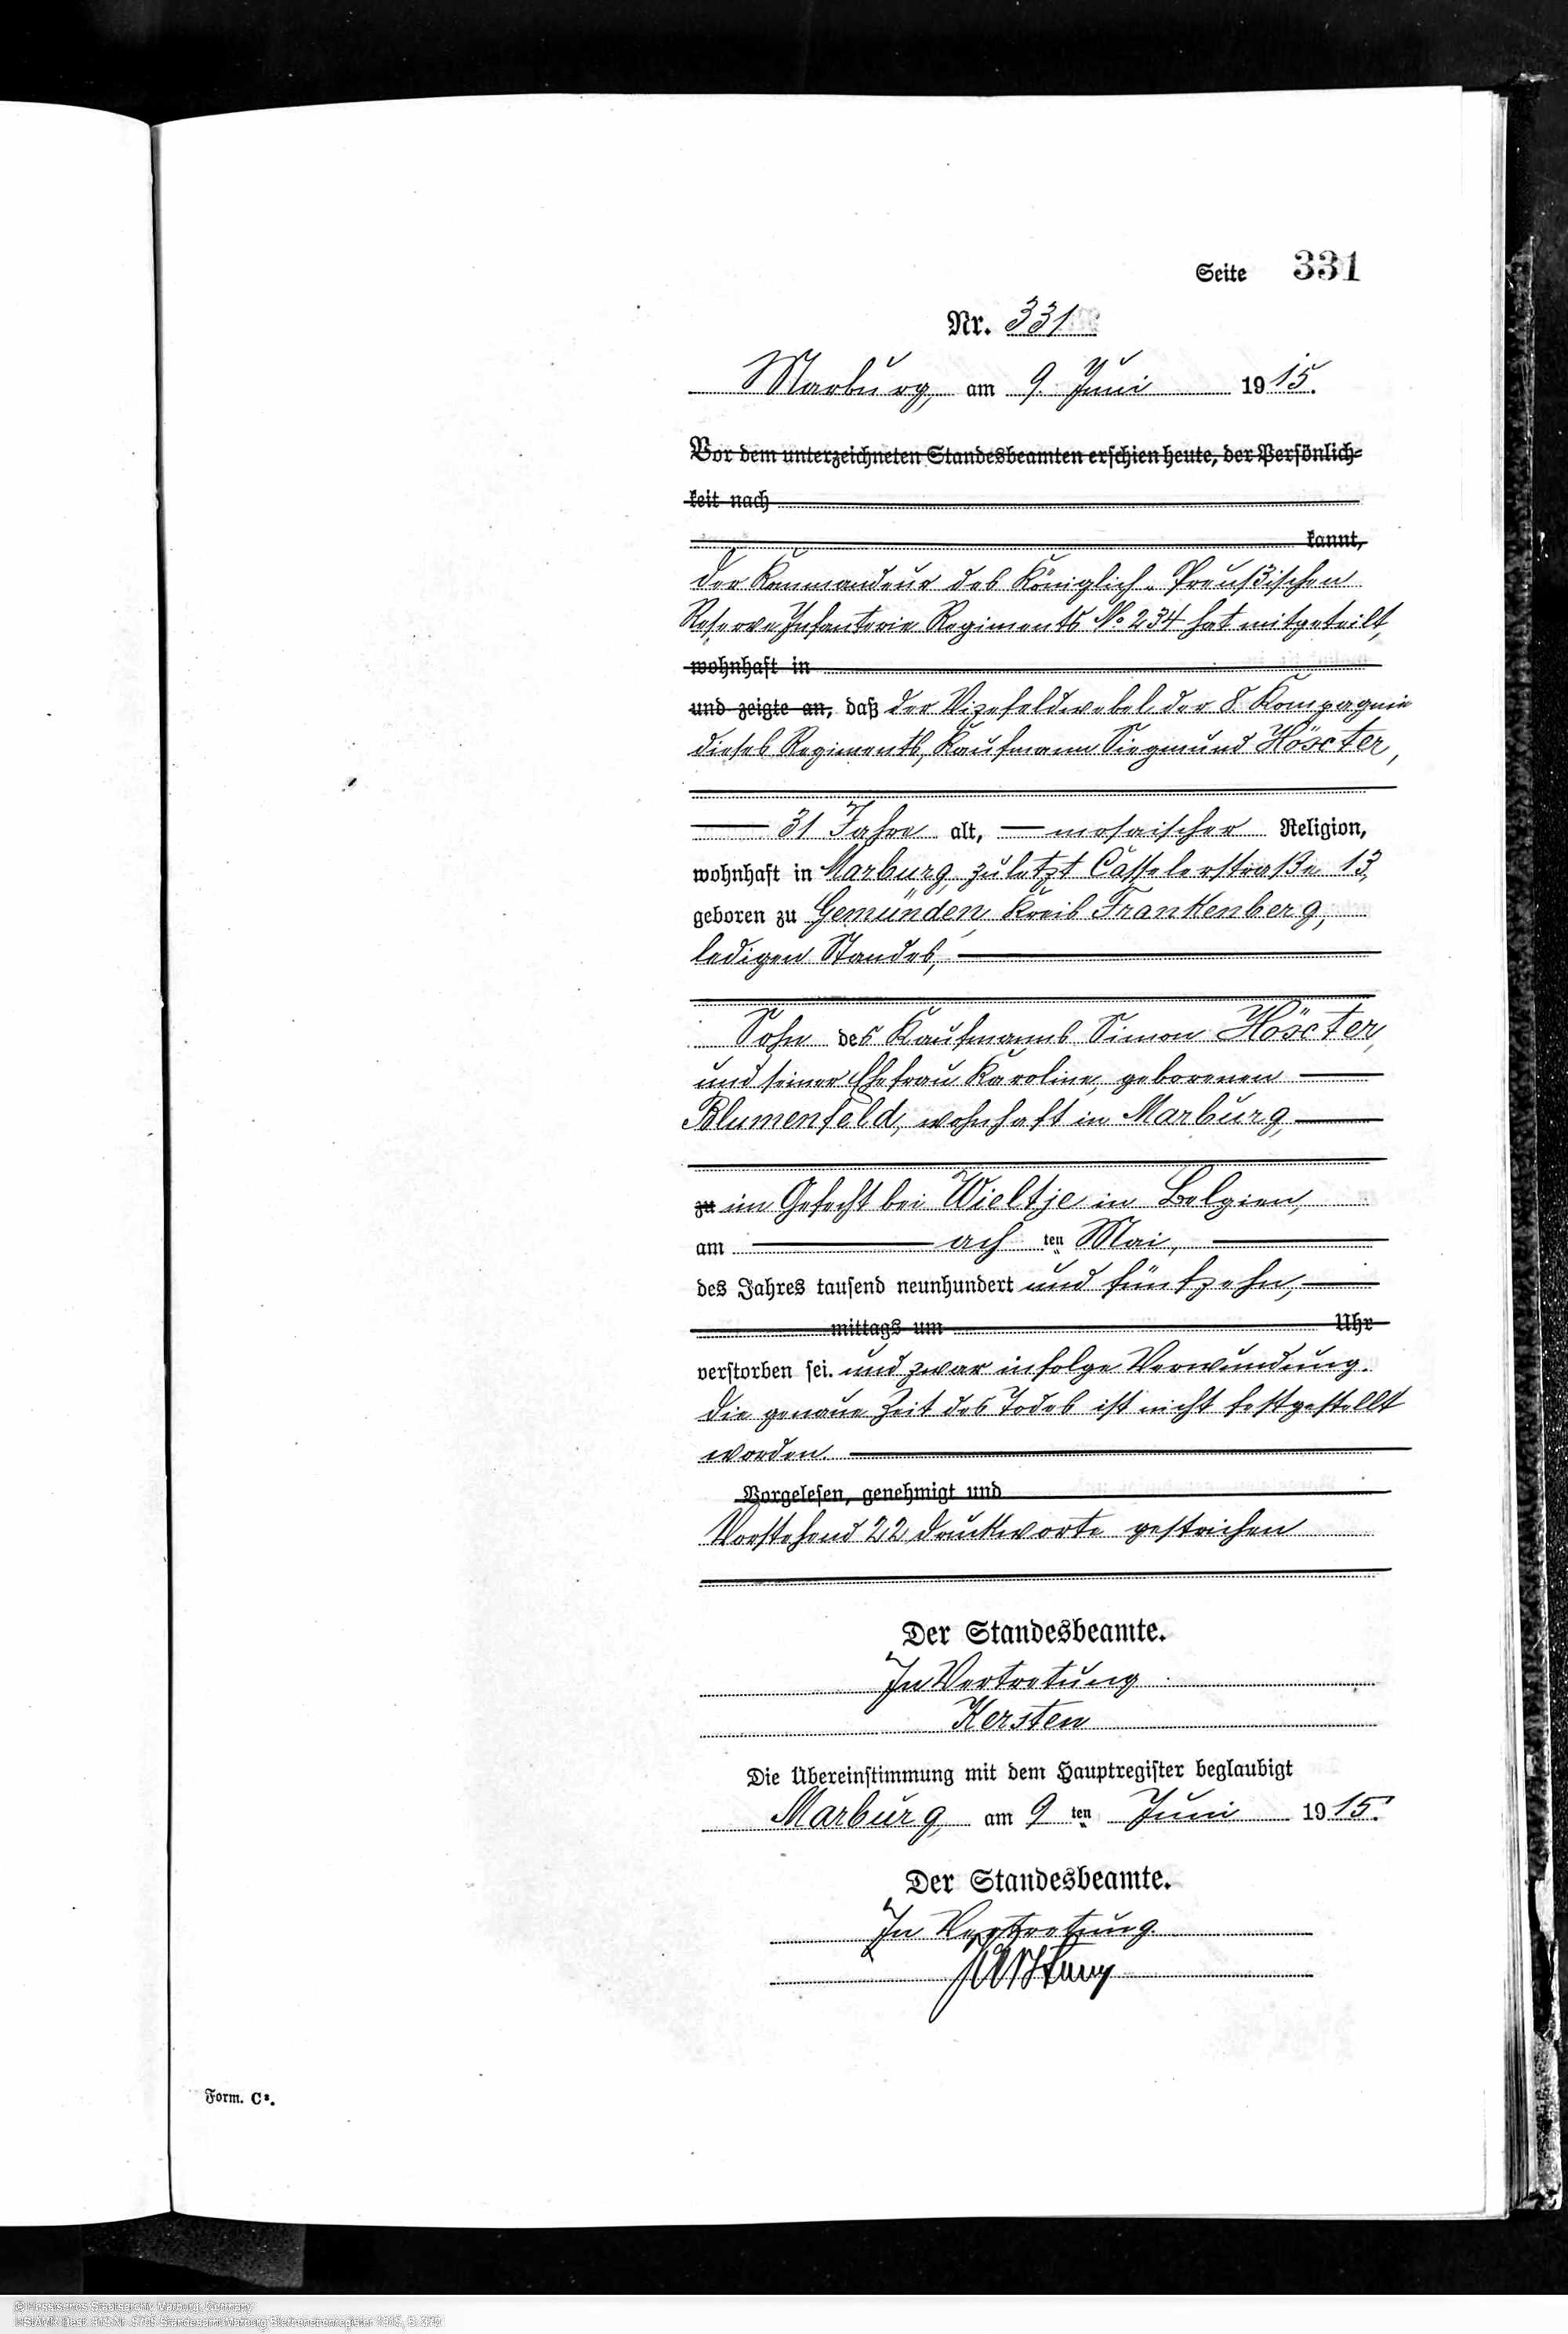 Seite 331
Nr. 331
Marburg, am 9. Juni 1915.
Vor dem unterzeichneten Standesbeamten erschien heute, der Persönlich-
keit nach
kannt,
Der Kommandeur des Königlich-Preußischen
Reserve Infanterie Regiments No 234 hat mitgeteilt,
wohnhaft in
und zeigte an, daß der Vizefeldwebel der 8. Kompagnie
dieses Regiments, Kaufmann Siegmund Höxter,
31 Jahre alt, mosaischer Religion,
wohnhaft in Marburg, zuletzt Casselerstraße 13,
geboren zu Gemünden, Kreis Frankenberg,
ledigen Standes,
Sohn des Kaufmanns Simon Höxter,
und seiner Ehefrau Karoline, geborenen
Blumenfeld, wohnhaft in Marburg,
zu im Gefecht bei Wieltje in Belgien,
am ach ten Mai,
des Jahres tausend neunhundert und fünfzehn,
mittags um Uhr
verstorben sei. und zwar infolge Verwundung.
Die genaue Zeit des Todes ist nicht festgestellt
worden.
Vorgelesen, genehmigt und
Vorstehend 22 Druckworte gestrichen
Der Standesbeamte.
In Vertretung
Kersten
Die Übereinstimmung mit dem Hauptregister beglaubigt
Marburg, am 9 ten Juni 1915.
Der Standesbeamte.
In Vertretung.
Form. C².
© Hessisches Staatsarchiv Marburg, Germany